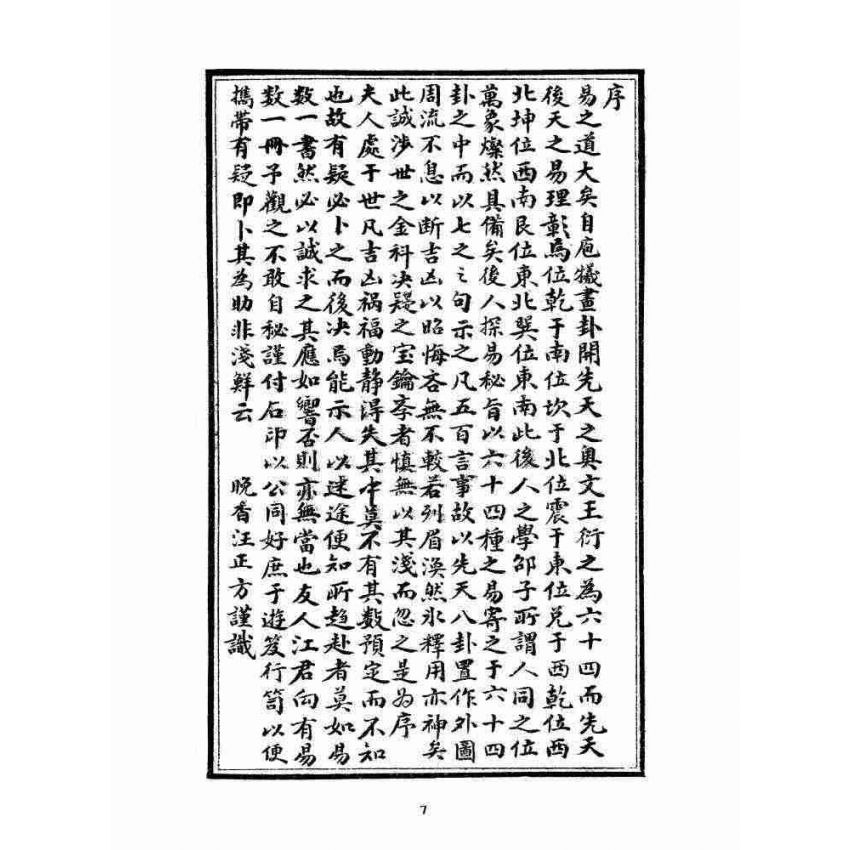 序
易之道大矣自庖犧畫卦開先天之奥文王衍之為六十四而先天
後天之易理彰焉位乾于南位坎于北位震于東位兑于西乾位西
北坤位西南艮位東北巽位東南此後人之學邵子所謂人同之位
萬象燦然具備矣後人探易秘旨以六十四種之易寄之于六十四
卦之中而以七之之句示之凡五百言事故以先天八卦置作外圖
周流不息以断吉凶以昭悔吝無不較若列眉涣然氷釋用亦神矣
此誠渉世之金科决疑之宝鑰李者慎無以其淺而忽之是为序
夫人處于世凡吉凶禍福動静得失其中莫不有其数預定而不知
也故有疑必卜之而後决焉能示人以迷途便知所趋赴者莫如易
数一書然必以誠求之其應如響否則亦無當也友人江君向有易
数一冊予觀之不敢自秘謹付石印以公同好庶于遊笈行笥以便
攜帶有疑即卜其為助非淺鮮云 晚香汪正方謹識
7